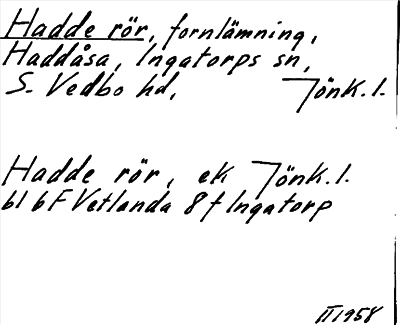 Hadde rör, fornlämning,
Haddåsa, Ingatorps sn,
S. Vedbo hd, Jönk. l.
Hadde rör, ek Jönk. l.
bl 6F Vetlanda 8f Ingatorp
II 1958